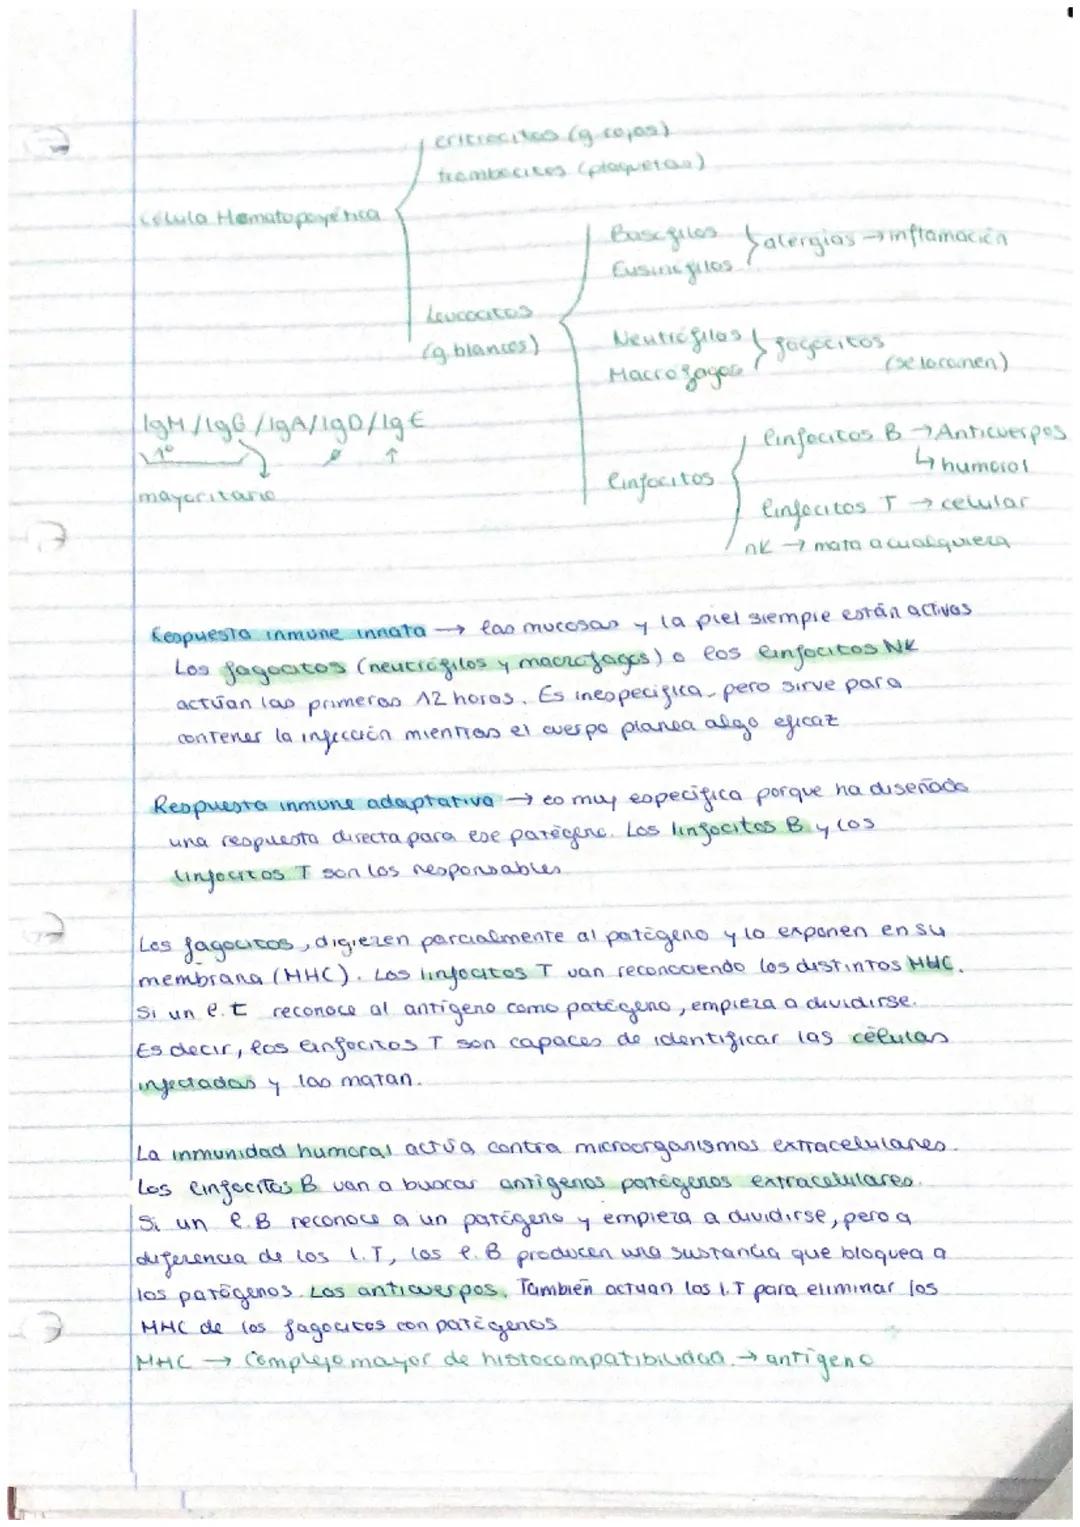 eritrocitos (g. rojos)
trombocitos (plaquetas)
Célula Hematopoyética
Basófilos
Eusinófilos
alergias → inflamación
Leucocitos
(g. blancos)
Neutrófilos
Macrófagos
fagocitos
(se lo comen)
IgM / IgG / IgA / IgD / IgE
1º
mayoritario
linfocitos
linfocitos B → Anticuerpos
↳ humoral
linfocitos T → celular
nK → mata a cualquiera
Respuesta inmune innata → las mucosas y la piel siempre están activas
Los fagocitos (neutrófilos y macrofagos) o los linfocitos NK
actúan las primeras 12 horas. Es inespecífica, pero sirve para
contener la infección mientras el cuerpo planea algo eficaz
Respuesta inmune adaptativa → es muy específica porque ha diseñado
una respuesta directa para ese patógeno. Los linfocitos B y los
linfocitos T son los responsables
Los fagocitos, digieren parcialmente al patógeno y lo exponen en su
membrana (MHC). Los linfocitos T van reconociendo los distintos MHC.
Si un l.t reconoce al antígeno como patógeno, empieza a dividirse.
Es decir, los linfocitos T son capaces de identificar las células
infectadas y las matan.
La inmunidad humoral actúa contra microorganismos extracelulares.
Los linfocitos B van a buscar antígenos patógenos extracelulares.
Si un l.B reconoce a un patógeno y empieza a dividirse, pero a
diferencia de los l.T, los l.B producen una sustancia que bloquea a
los patógenos. Los anticuerpos. También actuan los l.T para eliminar los
MHC de los fagocitos con patógenos
MHC → Complejo mayor de histocompatibilidad. → antígeno